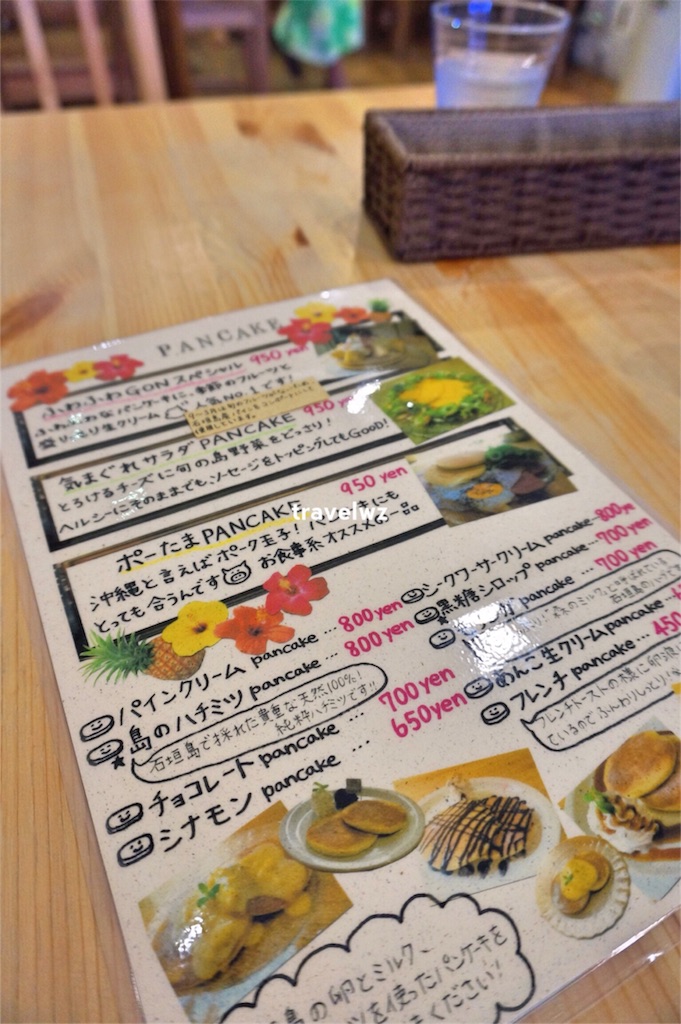 PANCAKE
ふわふわGONスペシャル 950 yen
ふわふわなパンケーキに、季節のフルーツと
盛り盛り生クリーム 人気No.1です!
気まぐれサラダPANCAKE 950 yen
とろけるチーズに旬の島野菜をどっさり!
ヘルシーにそのままでも、ソーセージをトッピングしてもGood!
ポーたまPANCAKE 950 yen
沖縄と言えばポーク玉子! パンケーキにも
とっても合うんです お食事系オススメの一品
travelwz
パインクリーム pancake … 800 yen
島のハチミツ pancake … 800 yen
石垣島で採れた貴重な天然100%!
純粋ハチミツです!!
チョコレート pancake … 700 yen
シナモン pancake … 650 yen
シークワーサークリーム pancake 800 ye
黒糖シロップ pancake 700 yen
pancake … 700 yen
めんこ生クリーム pancake
フレンチ pancake … 450
フレンチトーストの様に卵液に
ているので ふんわりしっとり
島の卵とミルク、
ツを使ったパンケーキを
ください!